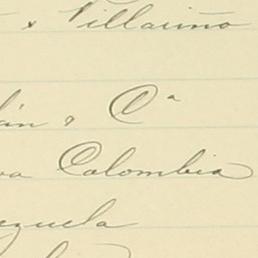 & Villarino
án & Cª
va Colombia
ezuela